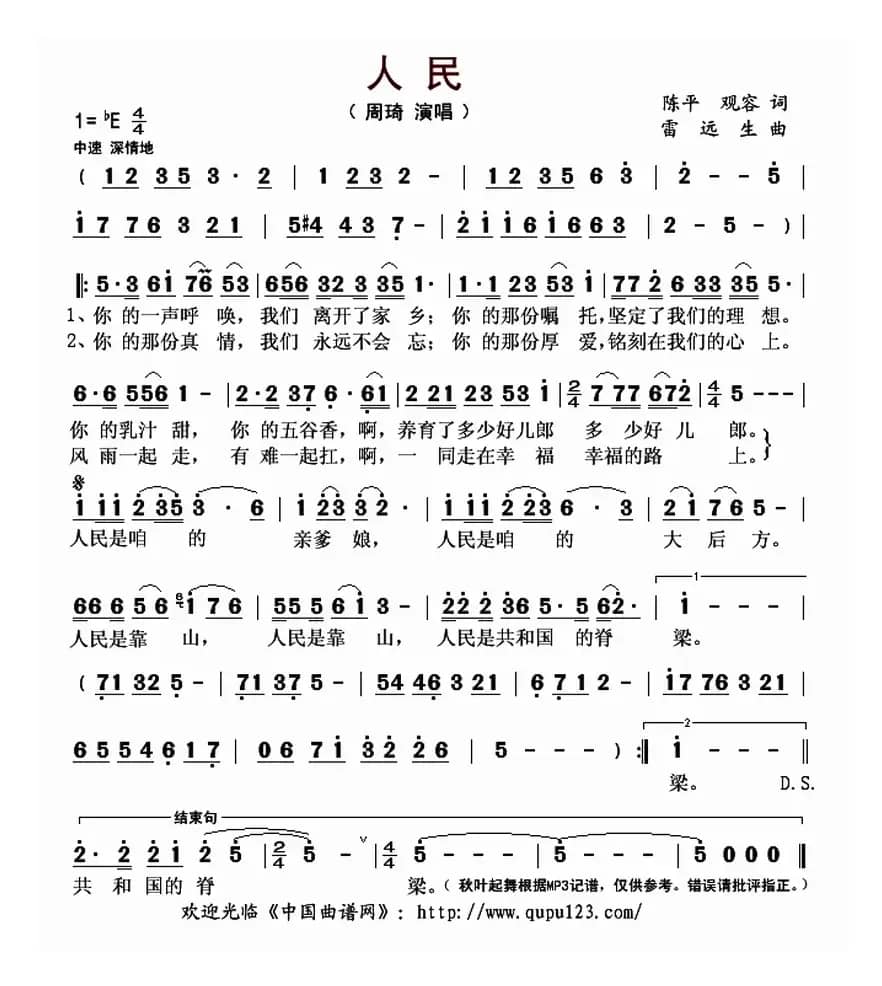 人民
(周琦 演唱)
陈平 观容 词
雷远生 曲
1=♭E 4/4
中速 深情地
( 1 2 3 5 3 · 2 | 1 2 3 2 - | 1 2 3 5 6 3 | 2 - - 5 |
1 7 7 6 3 2 1 | 5 #4 4 3 7 - | 2 1 1 6 1 6 6 3 | 2 - 5 - ) |
‖: 5 · 3 6 1 7 6 5 3 | 6 5 6 3 2 3 3 5 1 · | 1 · 1 2 3 5 3 1 | 7 7 2 6 3 3 3 5 5 · |
1、你 的一声呼 唤，我们 离开了家 乡；你 的那份嘱 托，坚定了我们的理 想。
2、你 的那份真 情，我们 永远不会 忘；你 的那份厚 爱，铭刻在我们的心 上。
6 · 6 5 5 6 1 - | 2 · 2 3 7 6 · 6 1 | 2 2 1 2 3 5 3 1 | 2/4 7 7 7 6 7 2 | 4/4 5 - - - |
你 的乳汁 甜， 你 的五谷香，啊，养育了多少好儿郎 多 少好 儿 郎。
风 雨一起 走， 有 难一起扛，啊，一 同走在幸 福 幸福的路 上。
1 1 1 2 3 5 3 · 6 | 1 2 3 3 2 · | 1 1 1 2 2 3 6 · 3 | 2 1 7 6 5 - |
人民是咱 的 亲爹 娘， 人民是咱 的 大 后 方。
6 6 6 5 6 1 7 6 | 5 5 5 6 1 3 - | 2 2 2 3 6 5 · 5 6 2 · | 1 - - |
1
人民是靠 山， 人民是靠 山， 人民是共和国 的脊 梁。
( 7 1 3 2 5 - | 7 1 3 7 5 - | 5 4 4 6 3 2 1 | 6 7 1 2 - | 1 7 7 6 3 2 1 |
6 5 5 4 6 1 7 | 0 6 7 1 3 2 2 6 | 5 - - - ) :‖ 1 - - - ‖
2
梁。 D.S.
结束句
2 · 2 2 1 2 5 | 2/4 5 - ∨ | 4/4 5 - - - | 5 - - - | 5 0 0 0 ‖
共 和 国的 脊 梁。(秋叶起舞根据MP3记谱，仅供参考。错误请批评指正。)
欢迎光临《中国曲谱网》：http://www.qupu123.com/